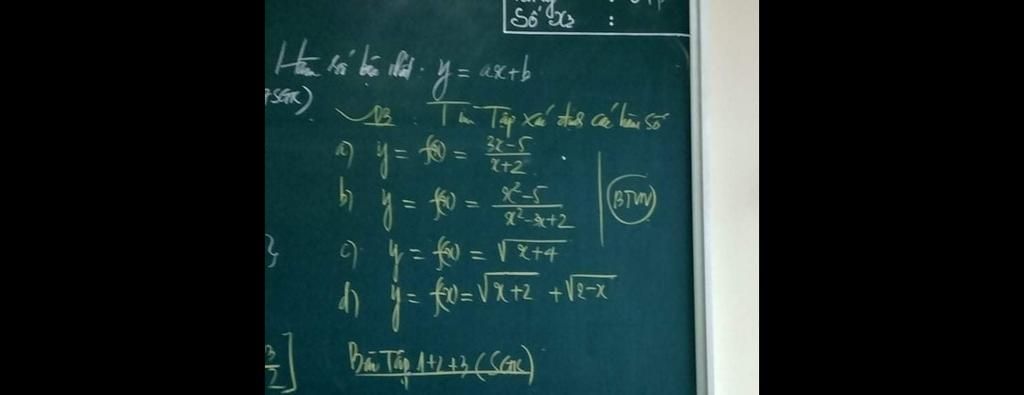 Số x2 :
Hàm số bậc nhất . y = ax+b
SGK)
VD3 . Tìm Tập xác định các hàm số
a) y = f(x) = \frac{3x-5}{x+2} .
b) y = f(x) = \frac{x²-5}{x²-3x+2}
BTVN
c) y = f(x) = √(x+4)
d) y = f(x) = √(x+2) + √(2-x)
3/2]
Bài Tập 1+2+3 (SGK)